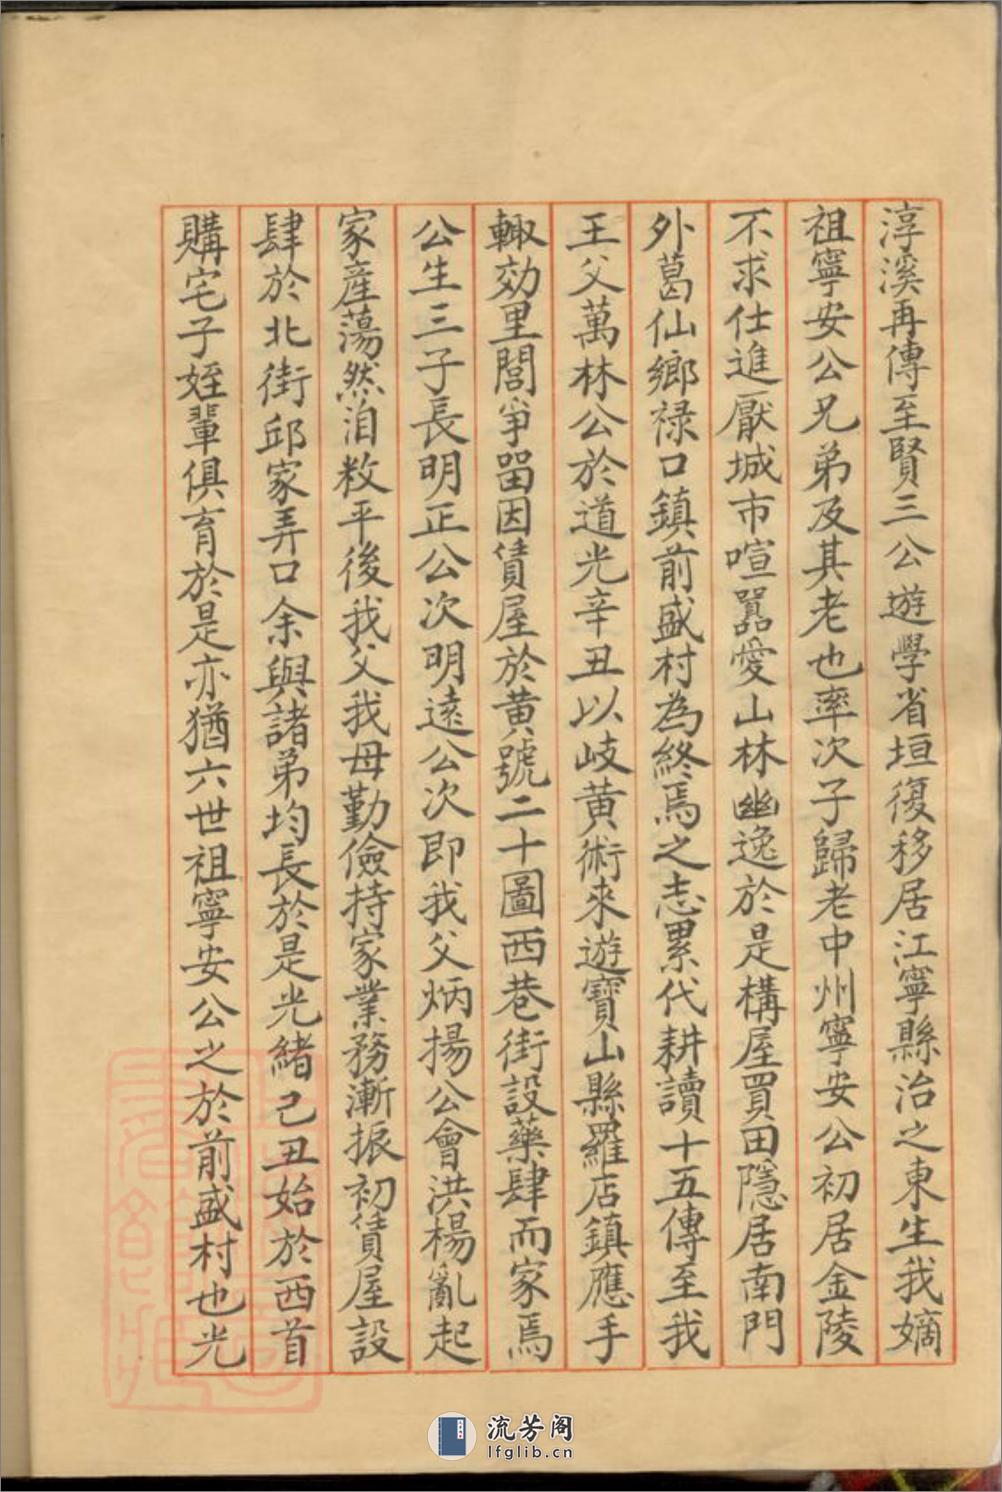 淳溪再傳至賢三公遊學省垣復移居江寧縣治之東生我嫡
祖寧安公兄弟及其老也率次子歸老中州寧安公初居金陵
不求仕進厭城市喧囂愛山林幽逸於是構屋買田隱居南門
外葛仙鄉祿口鎮前盛村為終焉之志累代耕讀十五傳至我
王父萬林公於道光辛丑以岐黃術來遊寶山縣羅店鎮應手
輙効里閭爭留因賃屋於黃號二十圖西巷街設藥肆而家焉
公生三子長明正公次明遠公次即我父炳揚公會洪楊亂起
家產蕩然洎敉平後我父我母勤儉持家業務漸振初賃屋設
肆於北街邱家弄口余與諸弟均長於是光緒己丑始於西首
購宅子姪輩俱育於是亦猶六世祖寧安公之於前盛村也光
流芳阁
lfglib.cn